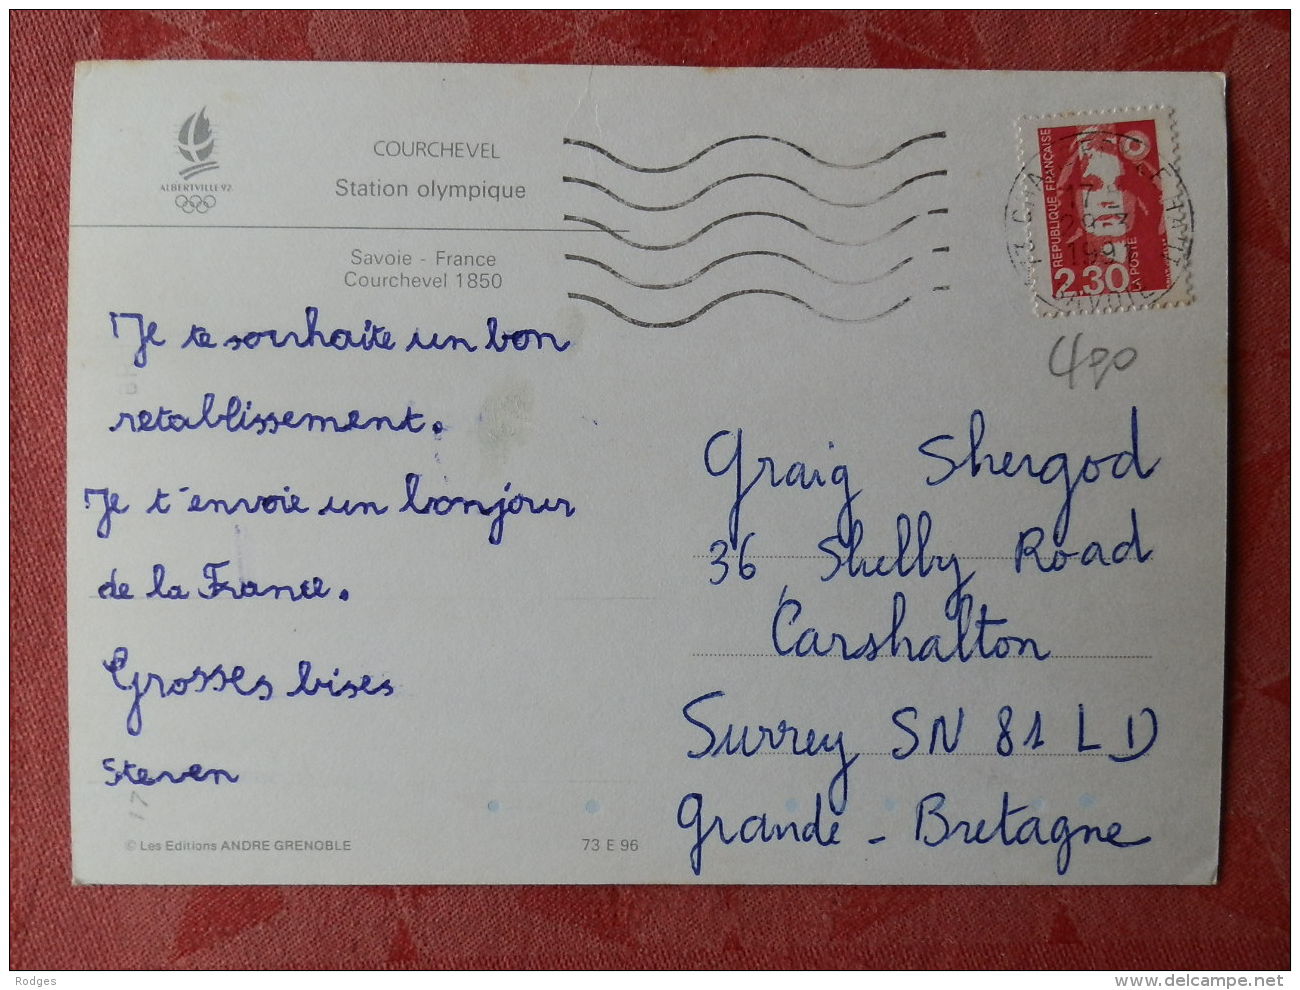 ALBERTVILLE 92
COURCHEVEL
Station olympique
Savoie - France
Courchevel 1850
REPUBLIQUE FRANÇAISE
LA POSTE
2,30
17
28-3
Je te souhaite un bon
retablissement.
Je t'envoie un bonjour
de la France.
Grosses bises
Steven
17
Graig Shergod
36 Shelby Road
Carshalton
Surrey SN 81 LD
Grande - Bretagne
© Les Editions ANDRE GRENOBLE
73 E 96
Rodges
www.delcampe.net